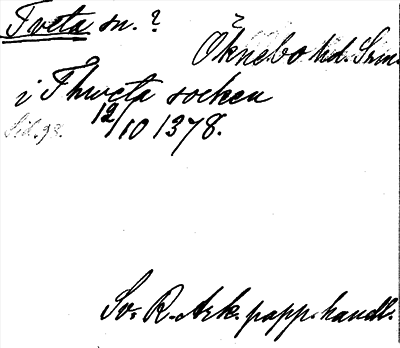 Tveta sn. ?
Öknebo hd. Srm.
i Thweta socken
12/10 1378.
Sv. R. Ark. papp. handl.